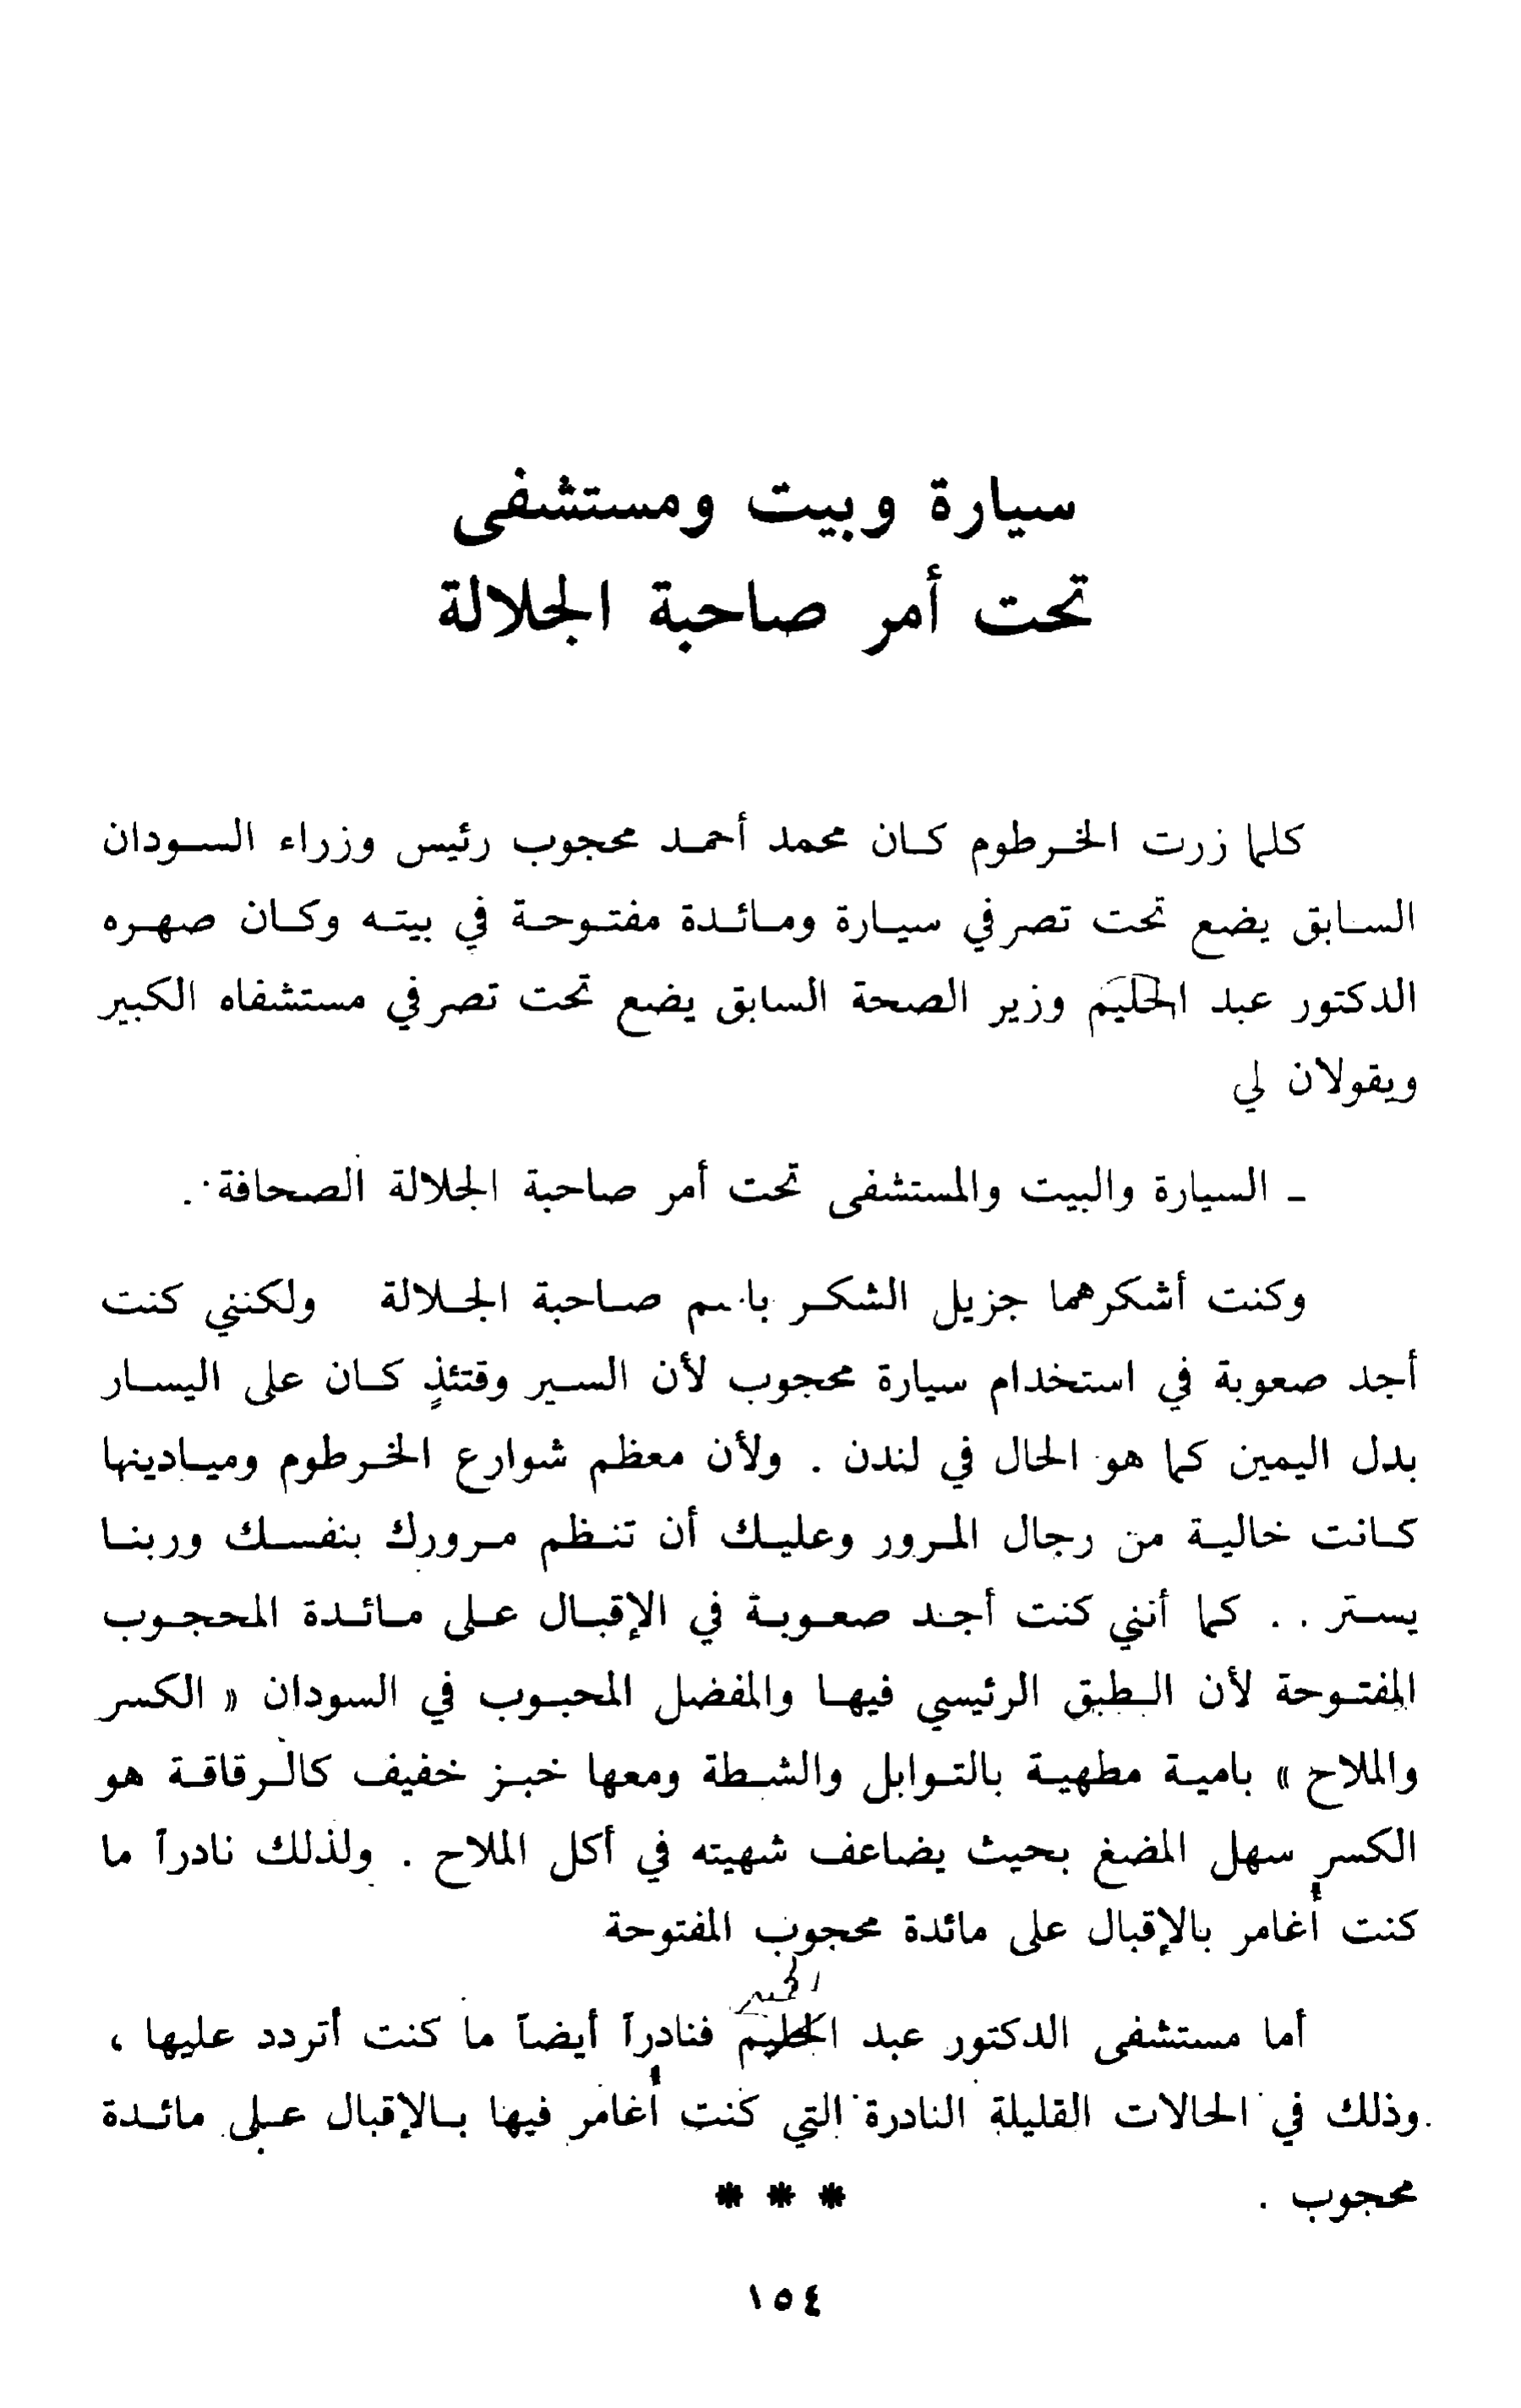 سيارة وبيت ومستشفى
تحت أمر صاحبة الجلالة
كلما زرت الخرطوم كان محمد أحمد محجوب رئيس وزراء السودان
السابق يضع تحت تصرفي سيارة ومائدة مفتوحة في بيته وكان صهره
الدكتور عبد الحليم وزير الصحة السابق يضع تحت تصرفي مستشفاه الكبير
ويقولان لي
- السيارة والبيت والمستشفى تحت أمر صاحبة الجلالة الصحافة .
وكنت أشكرهما جزيل الشكر باسم صاحبة الجلالة ولكنني كنت
أجد صعوبة في استخدام سيارة محجوب لأن السير وقتئذٍ كان على اليسار
بدل اليمين كما هو الحال في لندن . ولأن معظم شوارع الخرطوم وميادينها
كانت خالية من رجال المرور وعليك أن تنظم مرورك بنفسك وربنا
يستر . . كما أنني كنت أجد صعوبة في الإقبال على مائدة المحجوب
المفتوحة لأن الطبق الرئيسي فيها والمفضل المحبوب في السودان « الكسر
والملاح » بامية مطهية بالتوابل والشطة ومعها خبز خفيف كالرقاقة هو
الكسر سهل المضغ بحيث يضاعف شهيته في أكل الملاح . ولذلك نادراً ما
كنت أغامر بالإقبال على مائدة محجوب المفتوحة
أما مستشفى الدكتور عبد الحليم فنادراً أيضاً ما كنت أتردد عليها ،
وذلك في الحالات القليلة النادرة التي كنت أغامر فيها بالإقبال على مائدة
محجوب .
* * *
١٥٤